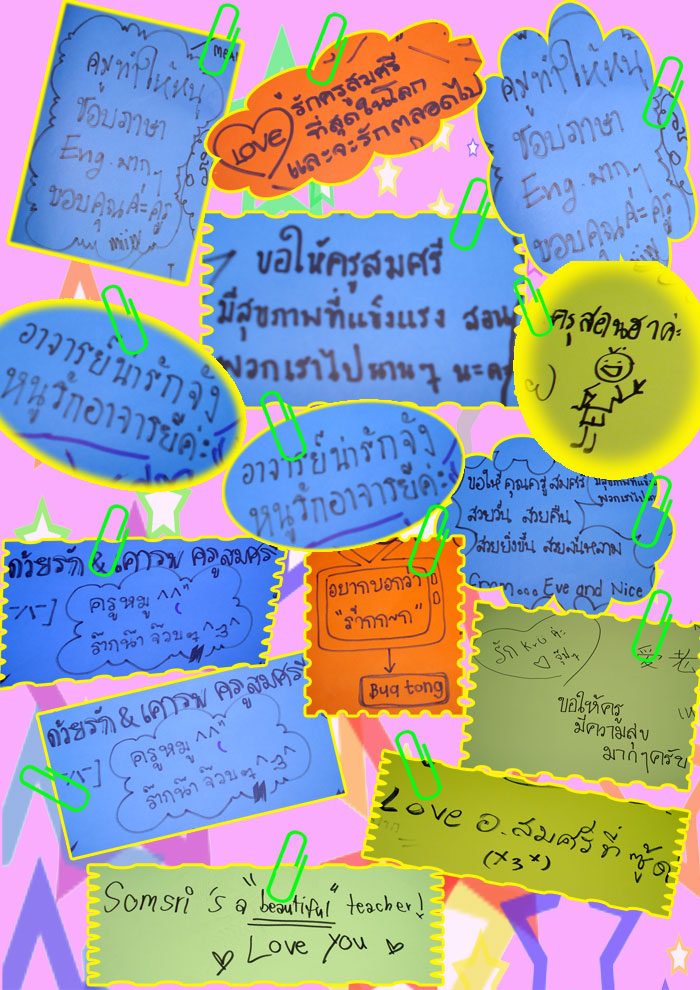 ครูทำให้หนู
ชอบภาษา
Eng. มากๆ
ขอบคุณค่ะครู
miw
LOVE
รักครูสมศรี
ที่สุดในโลก
และจะรักตลอดไป
ครูทำให้หนู
ชอบภาษา
Eng. มากๆ
ขอบคุณค่ะครู
miw
ขอให้ครูสมศรี
มีสุขภาพที่แข็งแรง สอน
พวกเราไปนานๆ นะ
ครูสอนฮาค่ะ
อาจารย์น่ารักจัง
หนูรักอาจารย์ค่ะ
อาจารย์น่ารักจัง
หนูรักอาจารย์ค่ะ
ขอให้คุณครูสมศรี
สวยวัน สวยคืน
สวยยิ่งขึ้น สวยลืมหลาม
Eve and Nice
ด้วยรัก & เคารพ ครูสมศรี
ครูหมู ^^
ร๊ากน๊า จ๊วบๆ ^3^
อยากบอกว่า
Bua tong
รัก
ขอให้ครู
มีความสุข
มากๆครับ
ด้วยรัก & เคารพ ครูสมศรี
ครูหมู ^^
ร๊ากน๊า จ๊วบๆ ^3^
Love อ.สมศรีที่ซู้ด
(x3x)
Somsri 's a "beautiful" teacher!
Love you